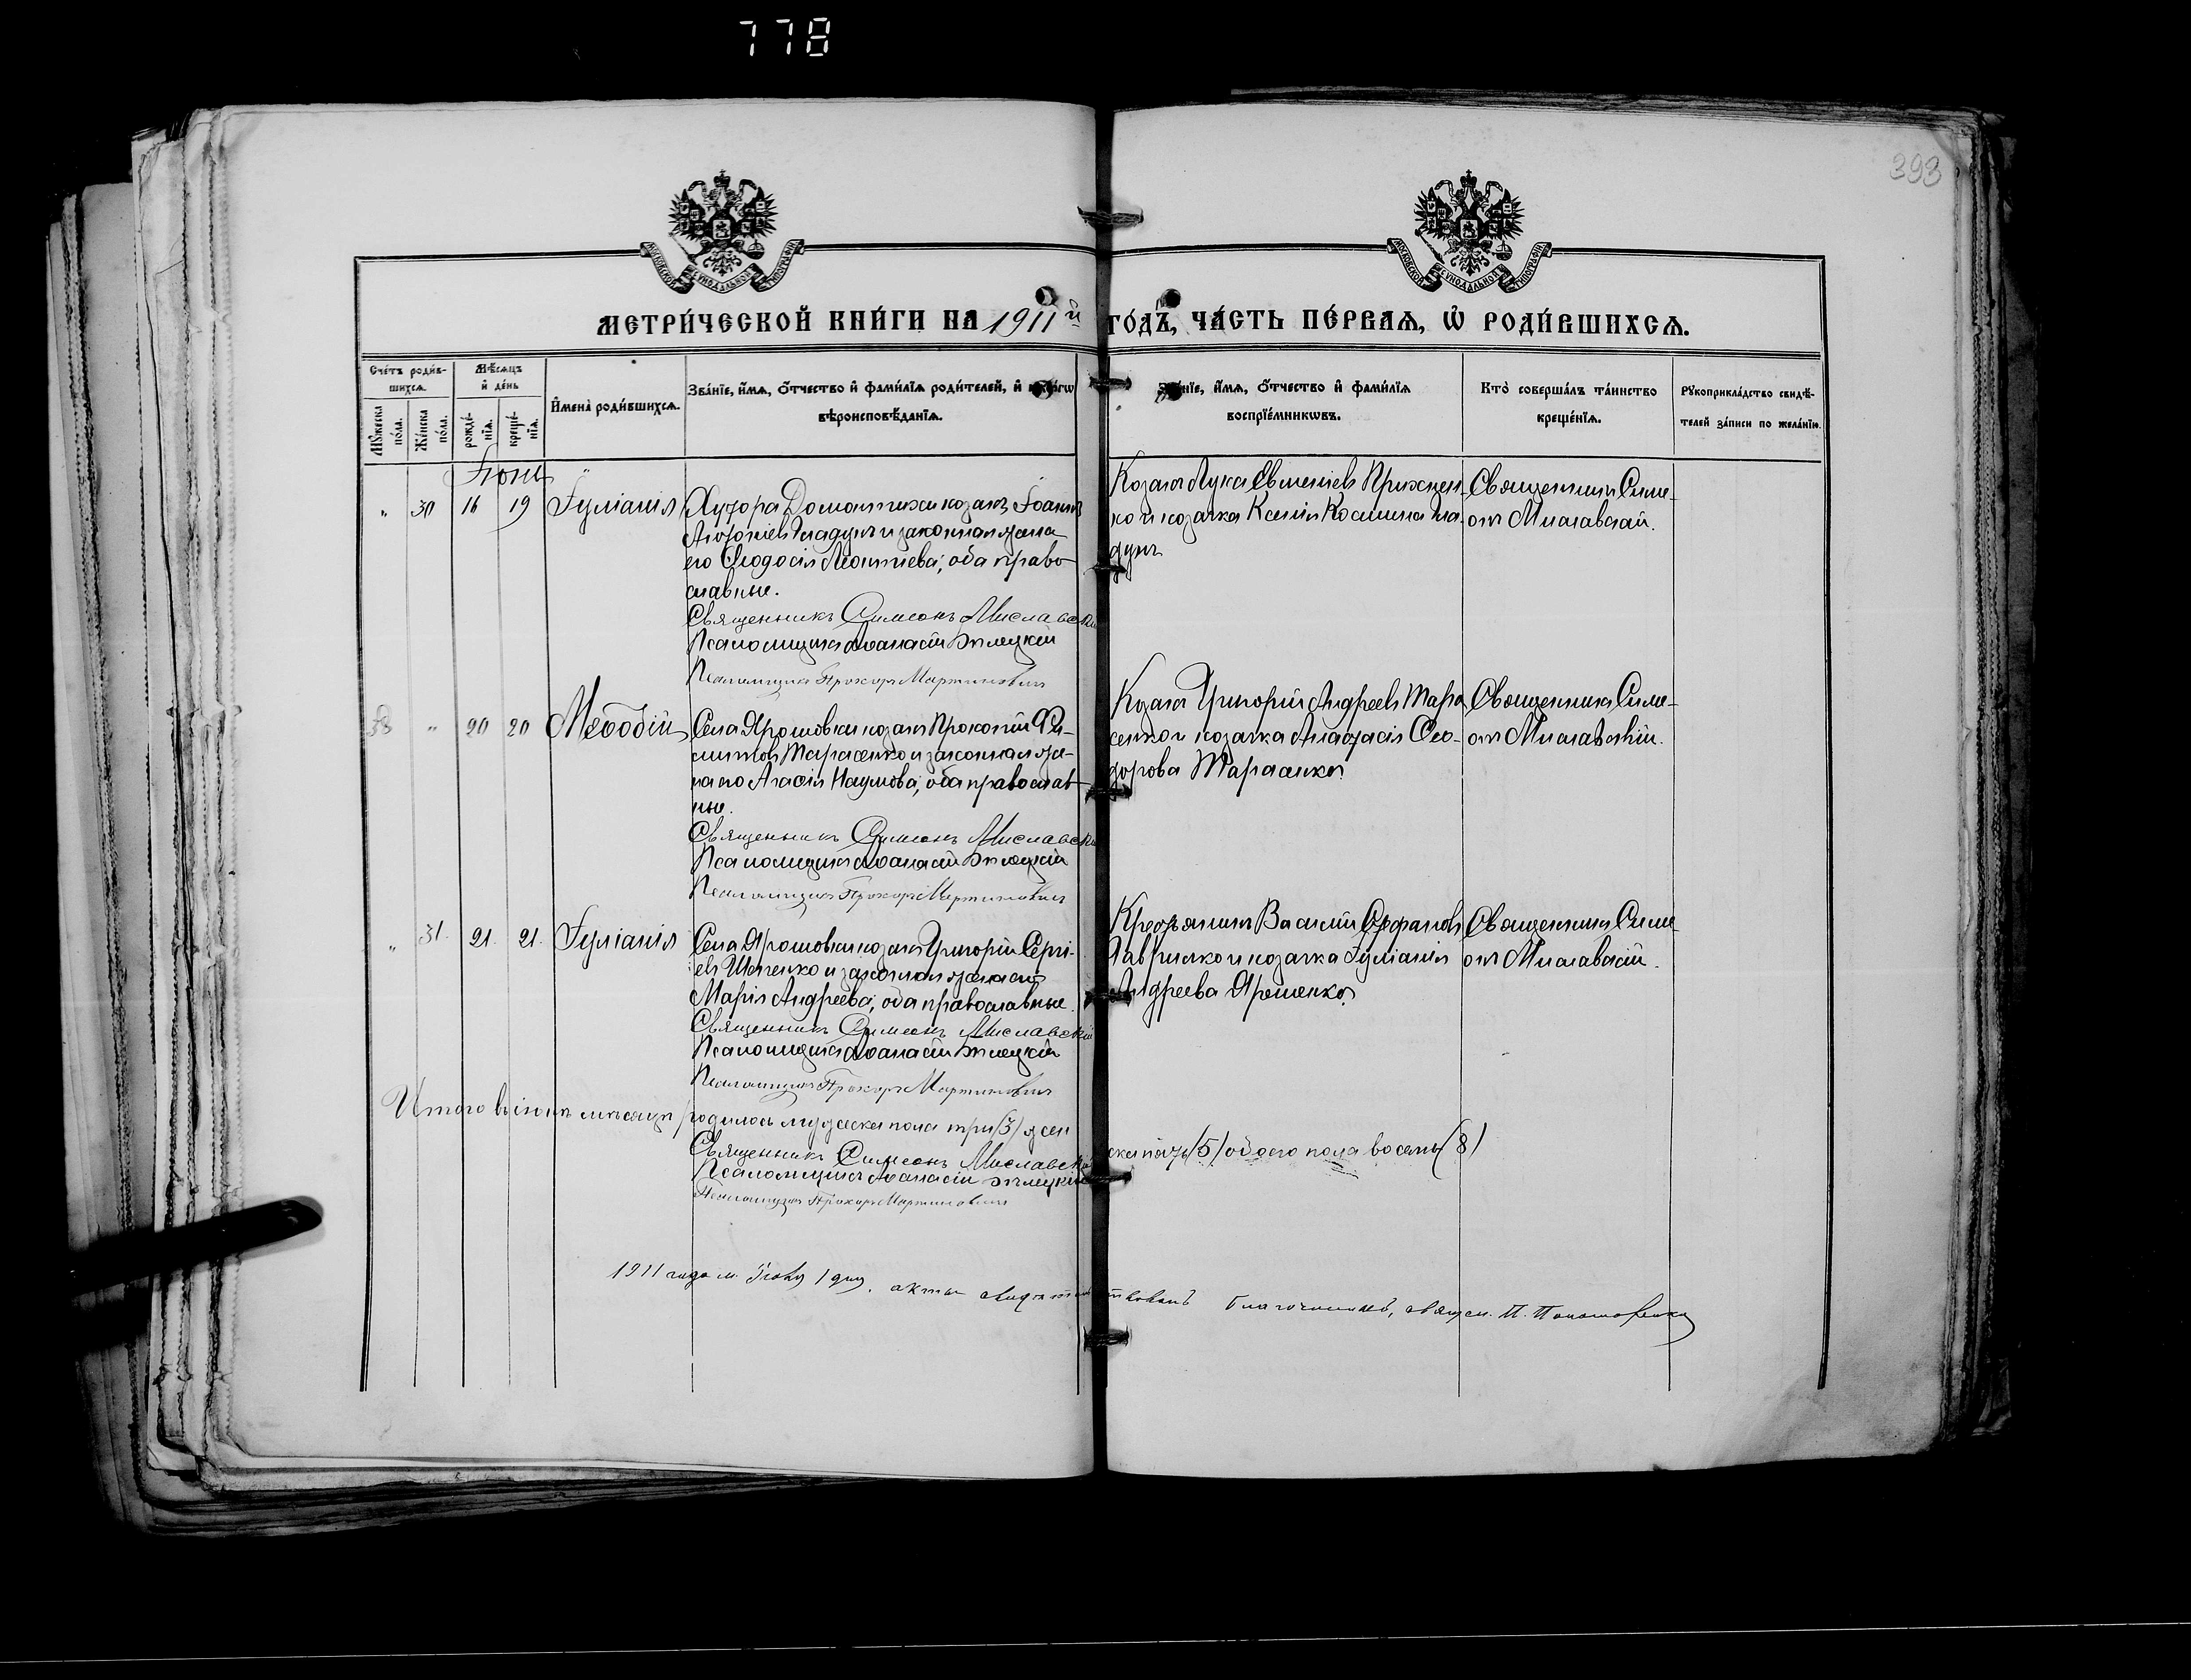 778
393
МОСКОВСКОЙ СѴНОДАЛЬНОЙ ТИПОГРАФІИ
МОСКОВСКОЙ СѴНОДАЛЬНОЙ ТИПОГРАФІИ
МЕТРИ́ЧЕСКОЙ КНИ́ГИ НА 1911й ГО́ДЪ, ЧА́СТЬ ПЕ́РВАѦ, Ѡ҆ РОДИ́ВШИХСѦ.
Сче́тъ роди́в-
шихсѧ.
Мꙋжеска по́ла.
Же́нска по́ла.
Мѣ́сѧцъ
и҆ де́нь
рожде́-
нїѧ.
креще́-
нїѧ.
И҆мена̀ роди́вшихсѧ.
Зва́нїе, и҆́мѧ, ѻ҆́тчество и҆ фами́лїѧ роди́телей, и҆
вѣроисповѣ́данїѧ.
Зва́нїе, и҆́мѧ, ѻ҆́тчество и҆ фами́лїѧ
воспрїе́мникѡвъ.
Кто̀ соверша́лъ та́инство
креще́нїѧ.
Рꙋкоприкла́дство свидѣ́-
телей за́писи по жела́нїю.
Іюнь
" 30 16 19 Іуліанія
Хутора Домонтихи козакъ Іоаннъ
Гладунъ и законная жена
его Ѳеодосія Леонтіева; оба право-
славные.
Священникъ Симеонъ Миславскій
Псаломщикъ Аѳанасій Бѣлецкій
Псаломщикъ Прохоръ Мартиновичъ
Козакъ Лука Евменіевъ
ко и козачка Ксенія Космина Гла-
дунъ
Священникъ Симе-
онъ Миславскій.
" 20 20 Меѳодій
Села Ярошовки козакъ Прокопій Фи-
липповъ Тарасенко и законная же-
на его Агафія Наумова; оба православ-
ные.
Священникъ Симеонъ Миславскій
Псаломщикъ Аѳанасій Бѣлецкій
Псаломщикъ Прохоръ Мартиновичъ
Козакъ Григорій Андреевъ Тара-
сенко и козачка Анастасія Ѳео-
дорова Тарасенко.
Священникъ Симе-
онъ Миславскій.
" 31. 21. 21. Іуліанія
Села Ярошовки козакъ Григорій Сергі-
евъ и законная жена его
Марія Андреева; оба православные.
Священникъ Симеонъ Миславскій
Псаломщикъ Аѳанасій Бѣлецкій
Псаломщикъ Прохоръ Мартиновичъ
Василій Стефановъ
Гавриленко и козачка Іуліанія
Андреева Ярошенко.
Священникъ Симе-
онъ Миславскій.
Итого въ іюнѣ мѣсяцѣ родилось мужеска пола три /3/ жен
ска пять /5/ обоего пола восемь (8)
Священникъ Симеонъ Миславскій
Псаломщикъ Аѳанасій Бѣлецкій
Псаломщикъ Прохоръ Мартиновичъ
1911 года м. Іюля 1 дня. акты свидѣтельствовалъ Благочинный, священ. П. Пономаренко